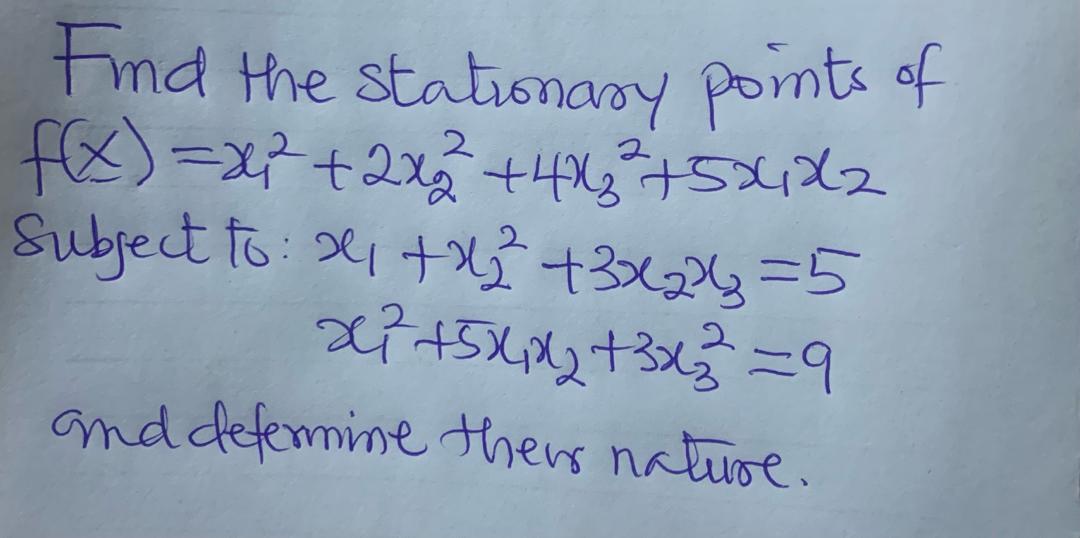 Find the stationary points of
f(x) = x₁² + 2x₂² + 4x₃² + 5x₁x₂
Subject to: x₁ + x₂² + 3x₂x₃ = 5
x₁² + 5x₁x₂ + 3x₃² = 9
and determine their nature.